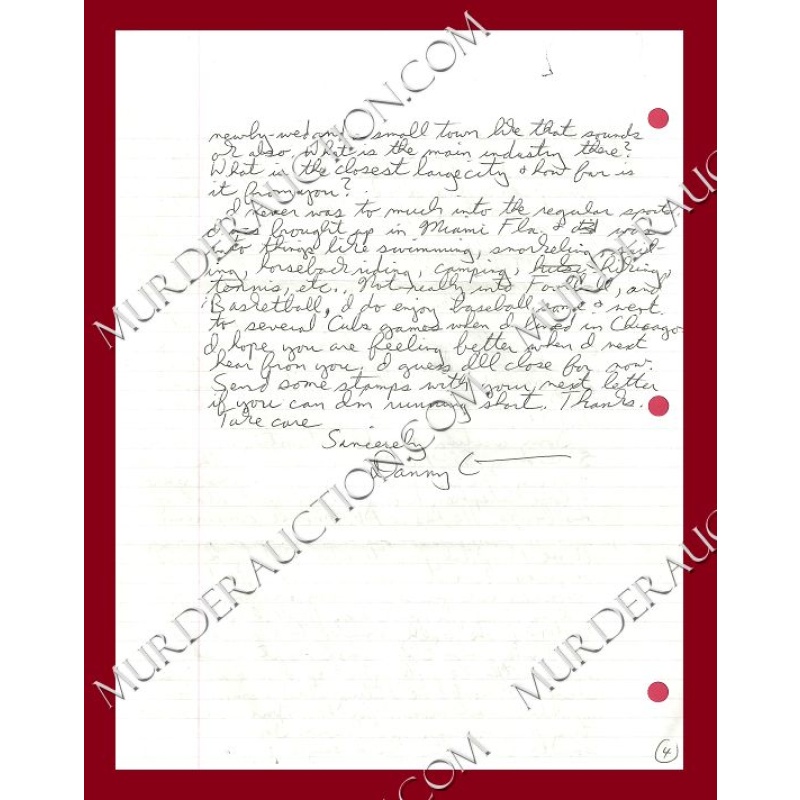 small town like that sounds
ok also. What is the main industry there?
What is the closest large city & how far is
it from you?
I never was to much into the regular sports,
brought up in Miami Fla & was
into things like swimming, snorkeling,
ing, horseback riding, camping, hiking,
tennis, etc.. Not really into Football, and
Basketball, I do enjoy baseball some & went
to several Cubs games when I lived in Chicago
I hope you are feeling better when I next
hear from you. I guess Ill close for now.
Send some stamps with your next letter
if you can Im running short. Thanks.
Take care
Sincierely
Danny C
4
MURDERAUCTION.COM
MURDERAUCTION.COM
MURDERAUCTION.COM
MURDERAUCTION.COM